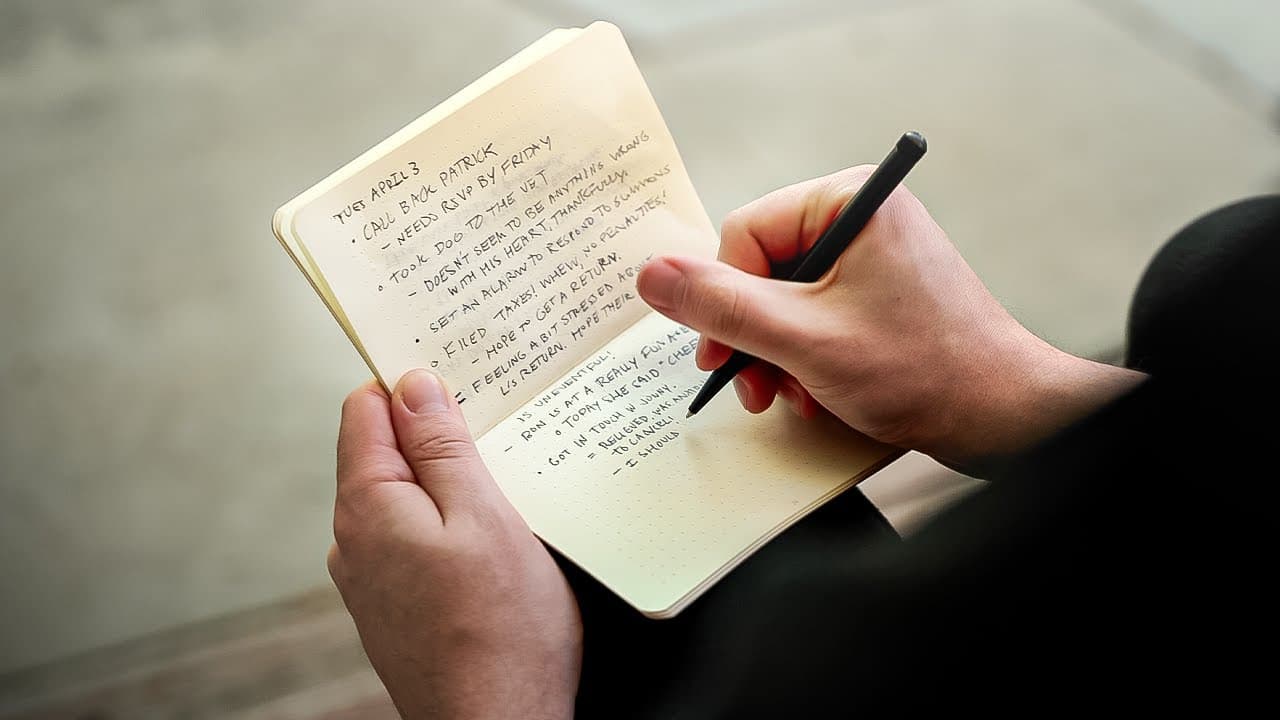 TUES APRIL 3
• CALL BACK PATRICK
– NEEDS RSVP BY FRIDAY
• TOOK DOG TO THE VET
– DOESN'T SEEM TO BE ANYTHING WRONG
WITH HIS HEART, THANKFULLY.
• SET AN ALARM TO RESPOND TO SUMMONS
o FILED TAXES! WHEW, NO PENALTIES!
– HOPE TO GET A RETURN.
= FEELING A BIT STRESSED
RETURN. HOPE THEIR
IS UNEVENTFUL!
– RON IS AT A REALLY FUN AGE
o TODAY SHE SAID "
• GOT IN TOUCH W
= RELIEVED,
TO CANCEL!
– I SHOULD